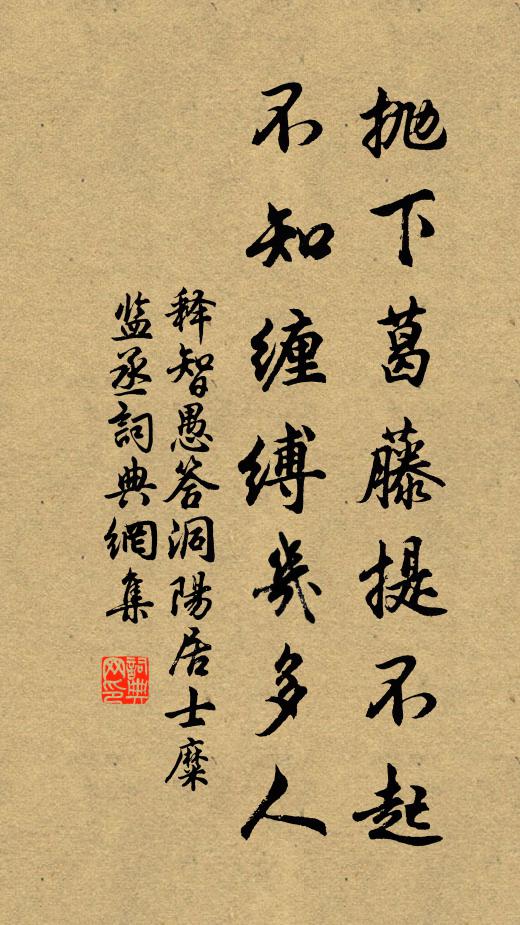 抛下葛藤提不起
不知缠缚几多人
释智愚答洞陽居士糜
监丞詞典網集
詞典网印